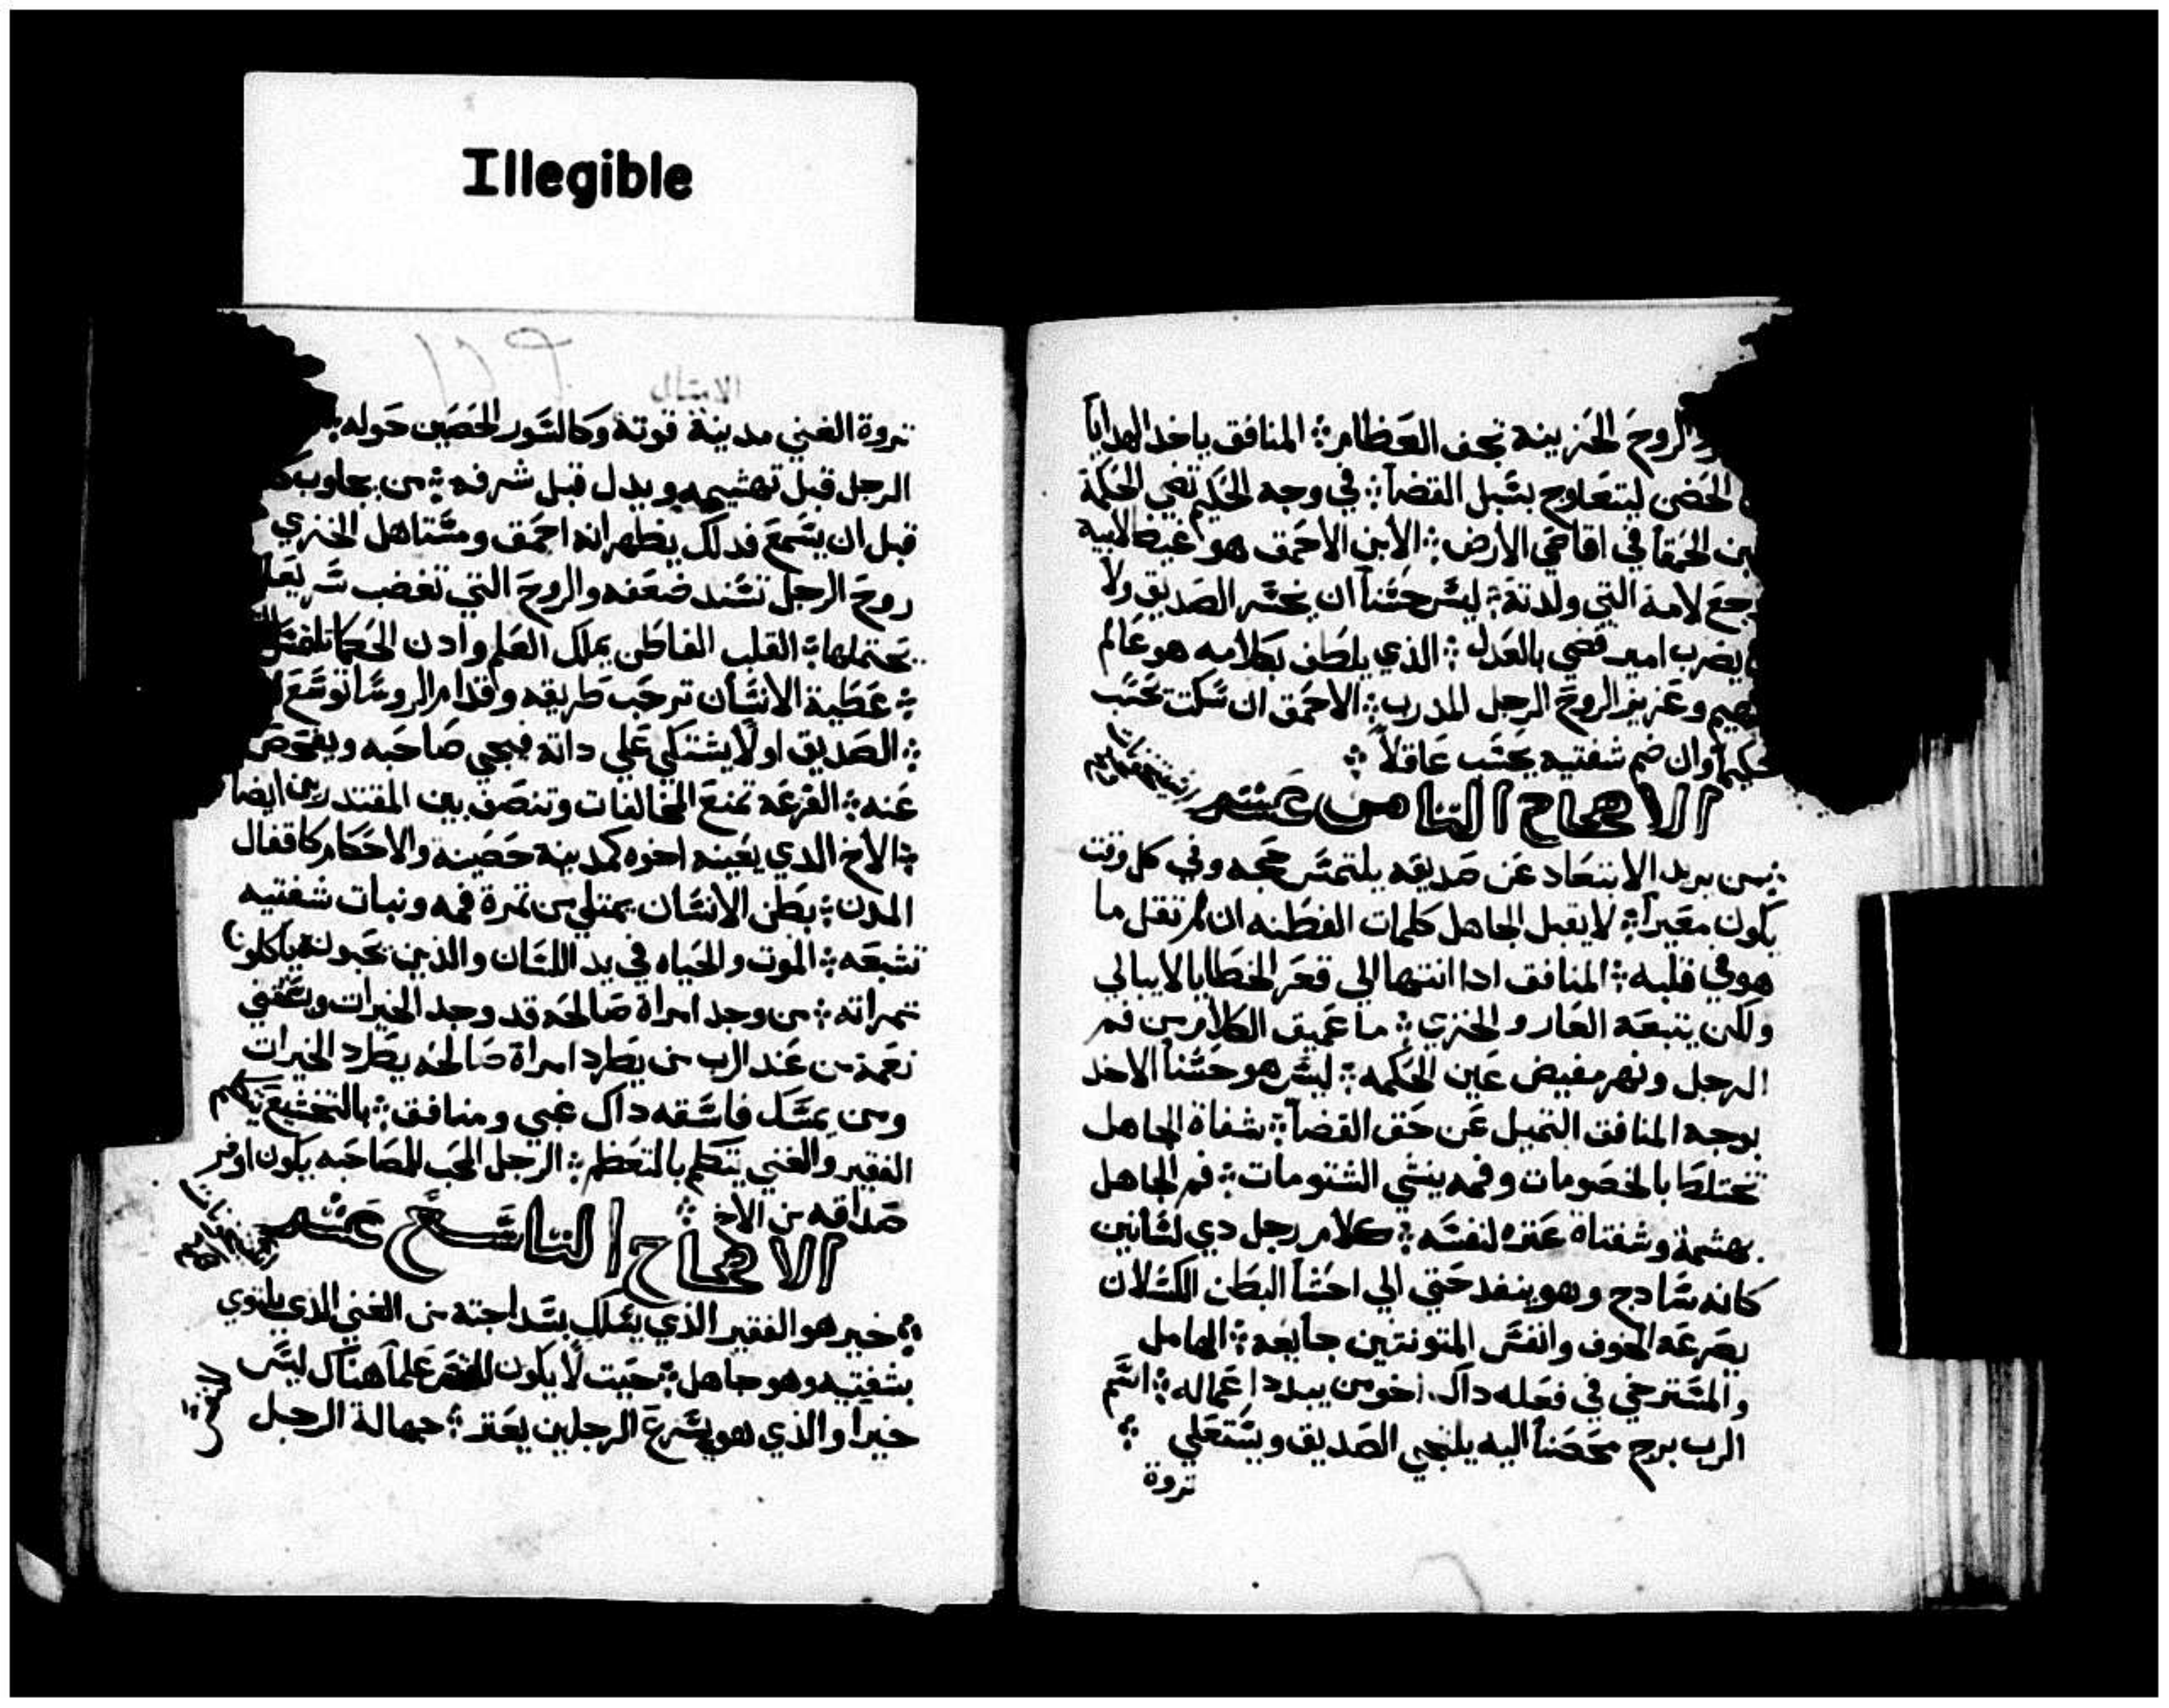 Illegible
الروح الحزينة تجفف العظام ܀ المنافق ياخد الهدايا
الحضن ليتعاوج بسبل القضا ܀ في وجه الحكيم تضي الحكمة
الحمقا في اقاصي الارض ܀ الابن الاحمق هو غيظ لابيه
لامه التي ولدته ܀ ليس حسنا ان يخسر الصديق ولا
يضرب امير قضي بالعدل ܀ الذي يلطف بكلامه هو عالم
وعزيز الروح الرجل المدرب ܀ الاحمق ان سكت تحسب
حكيما وان ضم شفتيه يحسب عاقلا ܀
الاصحاح التامن عشر
من يريد الابتعاد عن صديقه يلتمس حججه وفي كل وقت
يكون معيرا ܀ لا يقبل الجاهل كلمات الفطنه ان لم تقل ما
هو في قلبه ܀ المنافق ادا انتها الي قعر الخطايا لا يبالي
ولكن يتبعه العار والخزي ܀ ما عميق الكلام من فم
الرجل ونهر مفيض عين الحكمه ܀ ليس هو حسنا الاخد
بوجه المنافق التميل عن حق القضا ܀ شفاة الجاهل
تختلط بالخصومات وفمه ينشي الشتومات ܀ فم الجاهل
يهشمة وشفتاة عترة لنفسه ܀ كلام رجل دي لسانين
كانه سادج وهو ينفد حتي الي احشا البطن الكسلان
يصرعه الخوف وانفس المتونتين جايعه ܀ الهامل
والمسترخي في فعله داك اخو من يبدد اعماله ܀ اسم
الرب برج محصنا اليه يلتجي الصديق ويستعلي ܀
تروة
الامتال
١٢٦
تروة الغني مدينة قوتة وكالسور الحصين حوله
الرجل قبل تهشيمه ويدل قبل شرفه ܀ من يجاوب
قبل ان يسمع فدلك يظهر انه احمق ومستاهل الخزي
روح الرجل تسند ضعفه والروح التي تغضب سريعا
يحتملها ܀ القلب الفاطن يملك العلم وادن الحكما تلتمس
܀ عطية الانسان ترحب طريقه وقدام الروسا توسع
܀ الصديق اولا يشتكي علي داته فيجي صاحبه ويفحص
عنه ܀ القرعه تمنع المخالفات وتنصف بين المقتدرين ايضا
܀ الاخ الدي يعينه اخوه كمدينة حصينه والاحكام كاقفال
المدن ܀ بطن الانسان يمتلي من تمرة فمه ونبات شفتيه
تشبعه ܀ الموت والحياه في يد اللسان والذين يحبونه ياكلون
تمراته ܀ من وجد امراة صالحه قد وجد الخيرات ويستقي
نعمة من عند الرب من يطرد امراة صالحه يطرد الخيرات
ومن يمسك فاسقه داك غبي ومنافق ܀ بالتخشع يتكلم
الفقير والغني يتكلم بالتعظم ܀ الرجل المحب للمصاحبه يكون اوفر
صداقه من الاخ ܀
الاصحاح التاسع عشر
܀ خير هو الفقير الذي يسلك بسداجته من الغني الدي يلتوي
بشفتيه وهو جاهل ܀ حيت لا يكون للنفس علما هناك ليس
خيرا والذي هو يسرع الرجلين يعتر ܀ جهالة الرجل